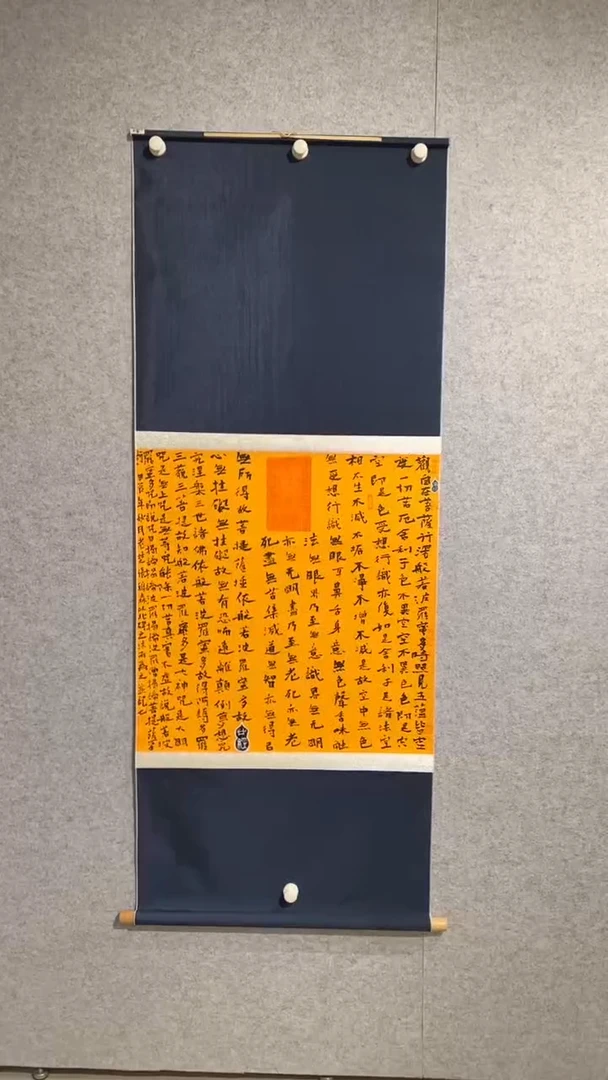 觀自在菩薩行深般若波羅蜜多時照見五蘊皆空
度一切苦厄舍利子色不異空空不異色色即是空
空即是色受想行識亦復如是舍利子是諸法空
相不生不滅不垢不淨不增不減是故空中無色
無受想行識無眼耳鼻舌身意無色聲香味觸
法無眼界乃至無意識界無無明
亦無無明盡乃至無老死亦無老
死盡無苦集滅道無智亦無得以
無所得故菩提薩埵依般若波羅蜜多故
心無挂礙無挂礙故無有恐怖遠離顛倒夢想究
竟涅槃三世諸佛依般若波羅蜜多故得阿耨多羅
三藐三菩提故知般若波羅蜜多是大神咒是大明
咒是無上咒是無等等咒能除一切苦真實不虛故說般若波
羅蜜多咒即說咒曰揭諦揭諦波羅揭諦波羅僧揭諦菩提薩婆